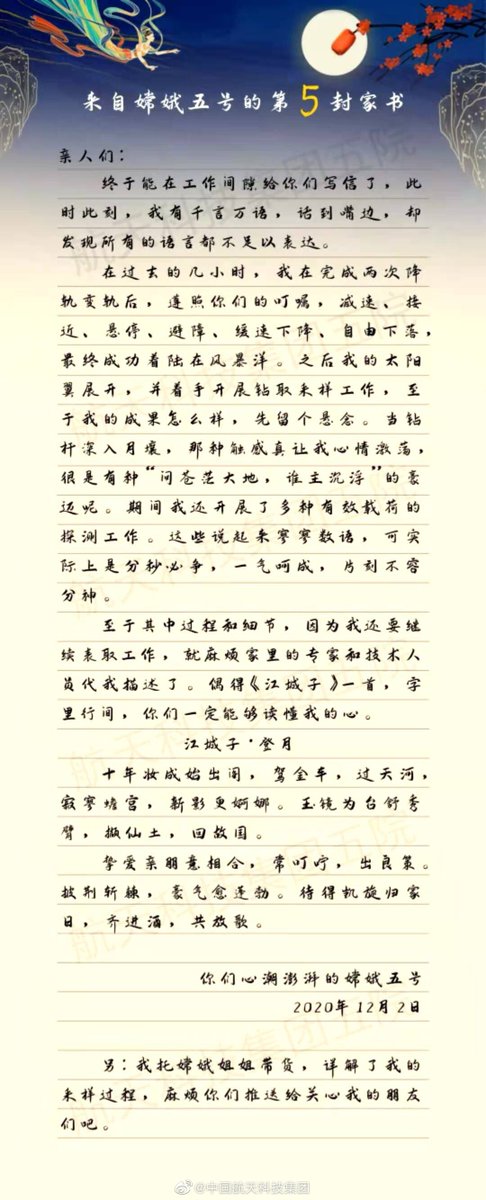 来自嫦娥五号的第5封家书
亲人们：
终于能在工作间隙给你们写信了，此
时此刻，我有千言万语，话到嘴边，却
发现所有的语言都不足以表达。
在过去的几小时，我在完成两次降
轨变轨后，遵照你们的叮嘱，减速、接
近、悬停、避障、缓速下降、自由下落，
最终成功着陆在风暴洋。之后我的太阳
翼展开，并着手开展钻取采样工作，至
于我的成果怎么样，先留个悬念。当钻
杆深入月壤，那种触感真让我心情激荡，
很是有种“问苍茫大地，谁主沉浮”的豪
迈呢。期间我还开展了多种有效载荷的
探测工作。这些说起来寥寥数语，可实
际上是分秒必争，一气呵成，片刻不容
分神。
至于其中过程和细节，因为我还要继
续表取工作，就麻烦家里的专家和技术人
员代我描述了。偶得《江城子》一首，字
里行间，你们一定能够读懂我的心。
江城子·登月
十年妆成始出阁，驾金车，过天河，
寂寥蟾宫，新影更婀娜。玉镜为台舒秀
臂，撷仙土，回故国。
挚爱亲朋意相合，常叮咛，出良策。
披荆斩棘，豪气愈蓬勃。待得凯旋归家
日，齐进酒，共放歌。
你们心潮澎湃的嫦娥五号
2020年12月2日
另：我托嫦娥姐姐带货，详解了我的
采样过程，麻烦你们推送给关心我的朋友
们吧。
航天科技集团五院
@中国航天科技集团